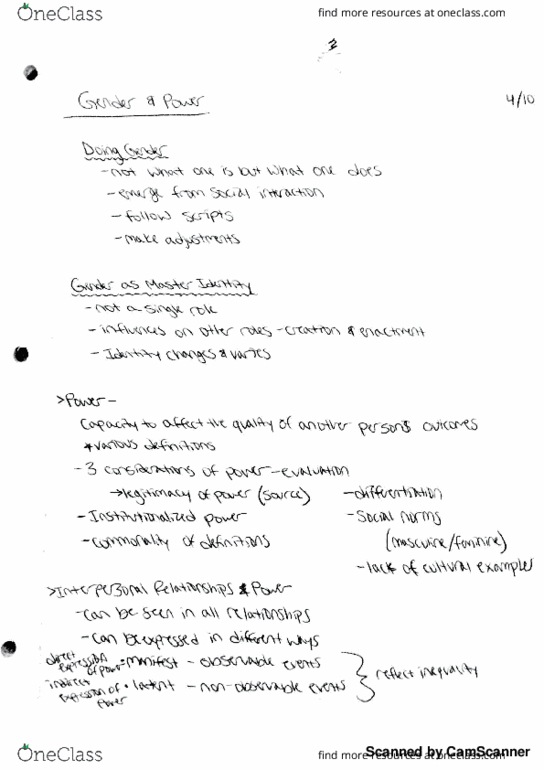 OneClass
find more resources at oneclass.com
Gender & Power
4/10
Doing Gender
-not what one is but what one does
-emerge from social interaction
-follow scripts
-make adjustments
Gender as Master Identity
-not a single role
-influences on other roles -creation & enactment
-Identity changes & varies
>Power-
capacity to affect the quality of another person's outcomes
*various definitions
-3 considerations of power-evaluation
→legitimacy of power (source)
-differentiation
-Institutionalized power
-Social norms
(masculine/feminine)
-commonality of definitions
-lack of cultural examples
>Interpersonal Relationships & Power
-can be seen in all relationships
-can be expressed in different ways
direct expression of power • manifest - observable events
indirect expression of power • latent - non-observable events
reflect inequality
OneClass
find more resources at oneclass.com
Scanned by CamScanner